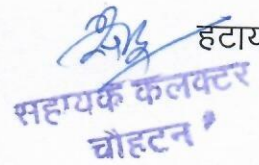 हटाय
सहायक कलक्टर
चौहटन